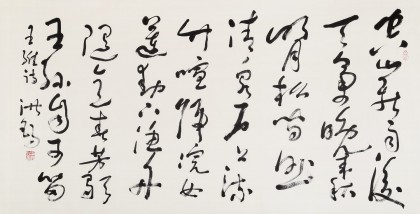 空山新雨後
天氣晚來秋
明月松間照
清泉石上流
竹喧歸浣女
蓮動下漁舟
隨意春芳歇
王孫自可留
王維詩